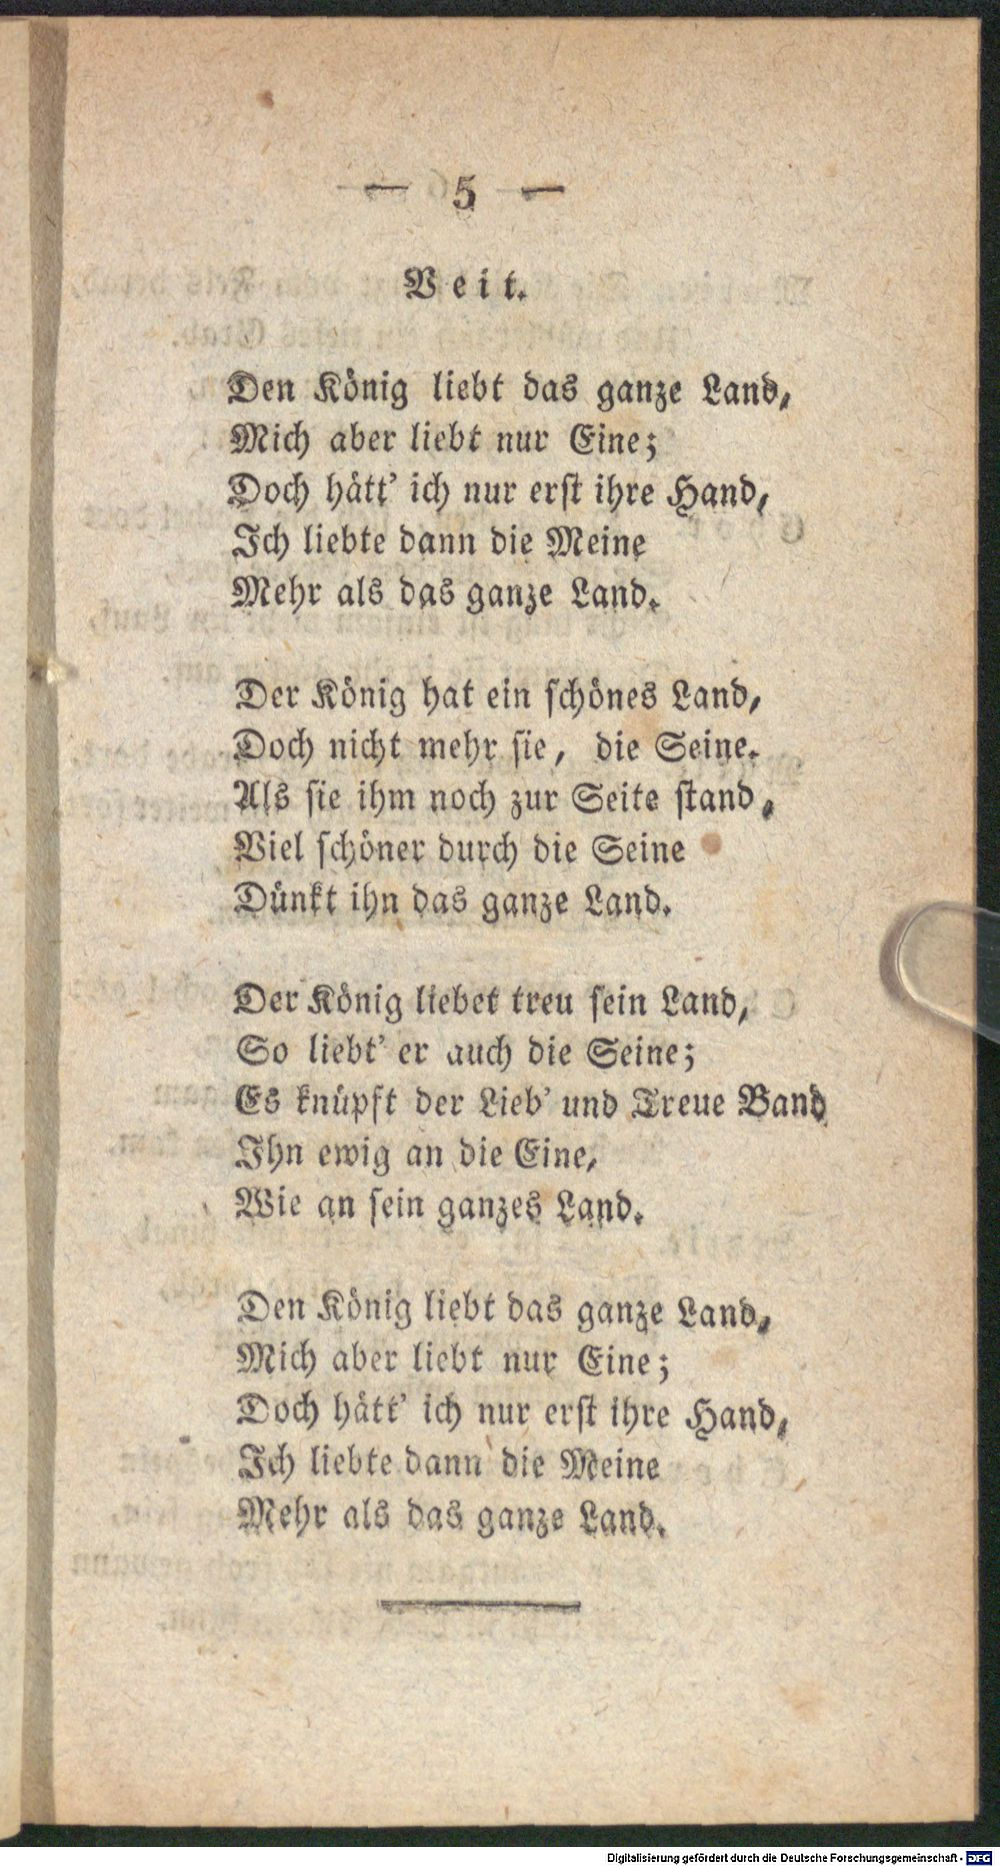 — 5 —
Veit.
Den König liebt das ganze Land,
Mich aber liebt nur Eine;
Doch hätt' ich nur erst ihre Hand,
Ich liebte dann die Meine
Mehr als das ganze Land.
Der König hat ein schönes Land,
Doch nicht mehr sie, die Seine.
Als sie ihm noch zur Seite stand,
Viel schöner durch die Seine
Dünkt ihn das ganze Land.
Der König liebet treu sein Land,
So liebt' er auch die Seine;
Es knüpft der Lieb' und Treue Band
Ihn ewig an die Eine,
Wie an sein ganzes Land.
Den König liebt das ganze Land,
Mich aber liebt nur Eine;
Doch hätt' ich nur erst ihre Hand,
Ich liebte dann die Meine
Mehr als das ganze Land.
Digitalisierung gefördert durch die Deutsche Forschungsgemeinschaft - DFG